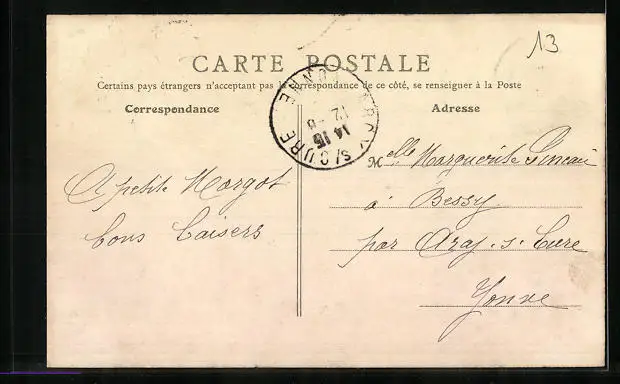 13
CARTE POSTALE
Certains pays étrangers n'acceptant pas la correspondance de ce côté, se renseigner à la Poste
Correspondance
Adresse
A petite Margot
bons baisers
Melle Marguerite
à Bessy
par Arcy. s. Cure
Yonne
ARCY S/CURE
YONNE
14 15
12 - 8